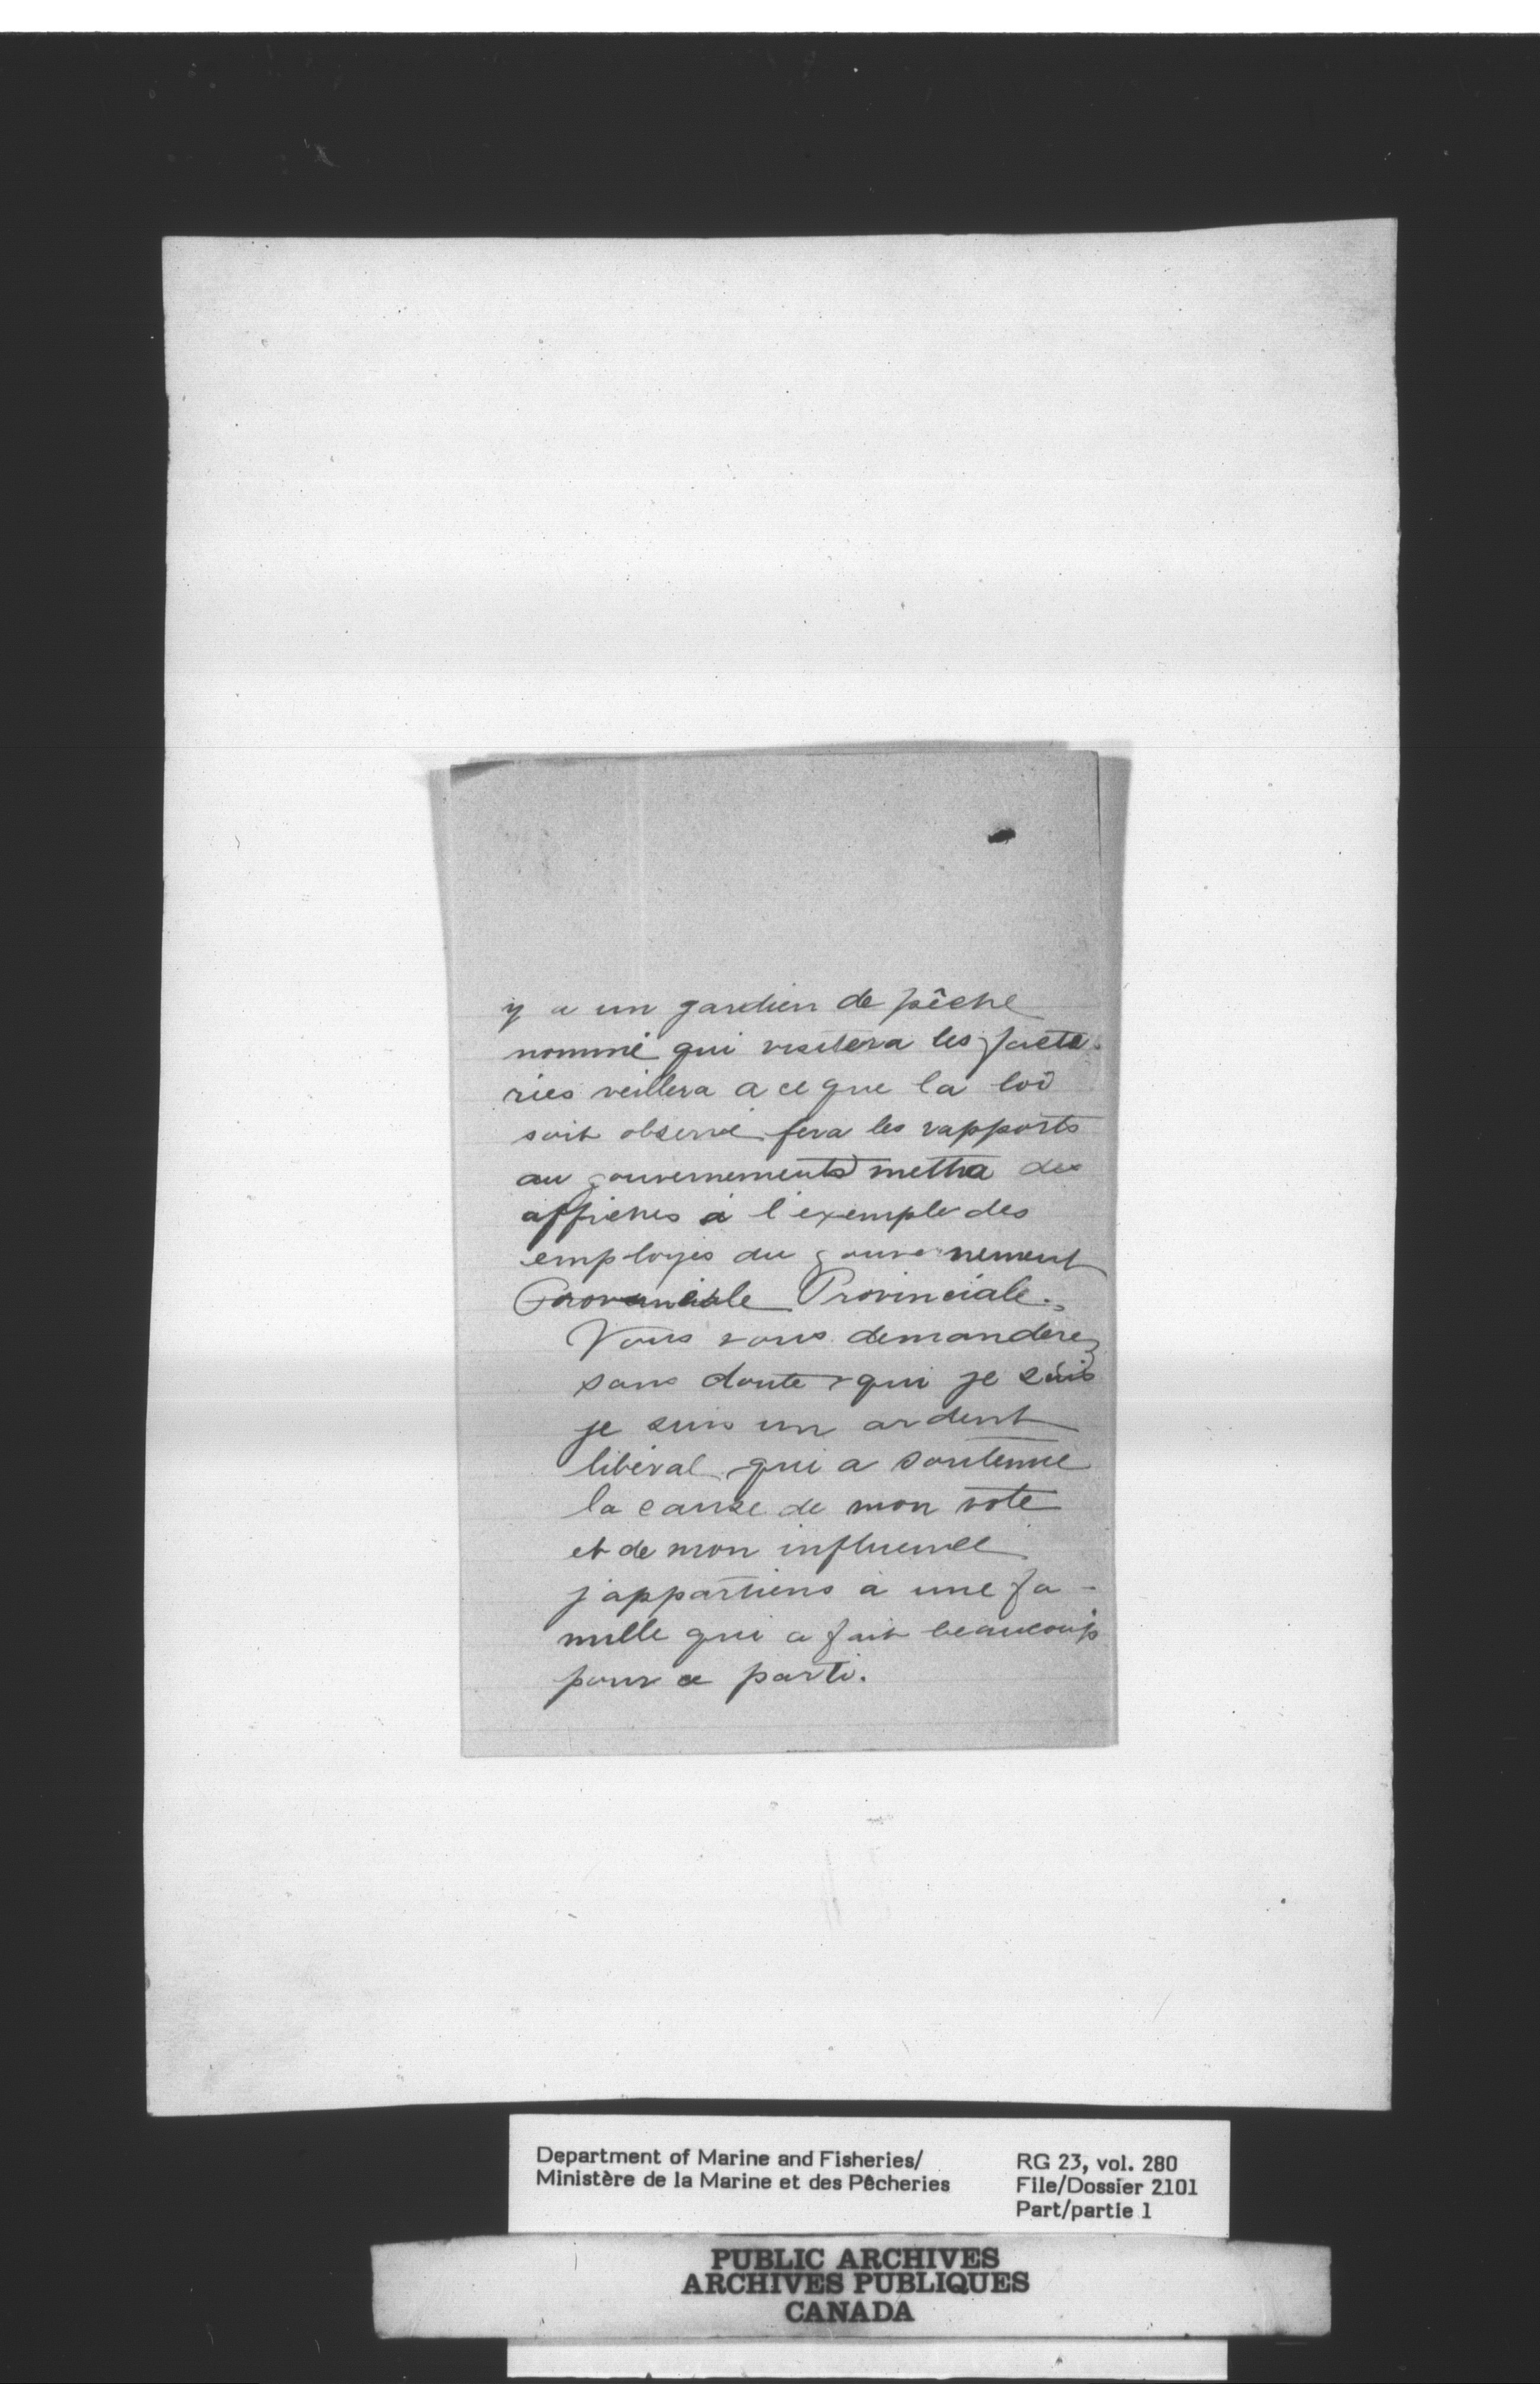 y a un gardien de pêche
nommé qui visitera les facte-
ries veillera a ce que la loi
soit observé fera les rapports
au gouvernements mettra des
affiches à l'exemple des
employés du gouvernement
Provinciale Provinciale.
Vous vous demanderez
sans doute qui je suis
je suis un ardent
libéral qui a soutenue
la cause de mon vote
et de mon influence
j'appartiens à une fa-
mille qui a fait beaucoup
pour ce parti.
Department of Marine and Fisheries/
Ministère de la Marine et des Pêcheries
RG 23, vol. 280
File/Dossier 2101
Part/partie 1
PUBLIC ARCHIVES
ARCHIVES PUBLIQUES
CANADA